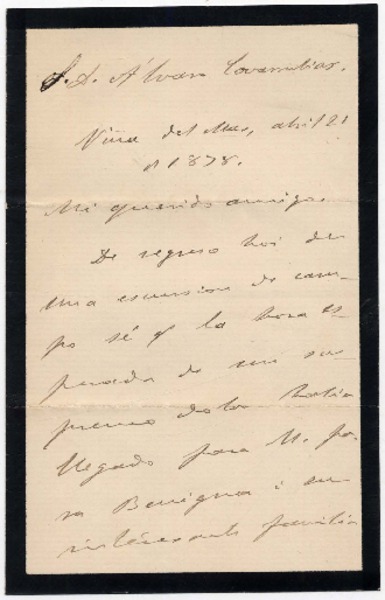 S. D. Álvaro Covarrubias.
Viña del Mar, abril 21
de 1878.
Mi querido amigo.
De regreso hoi de
una escursion de cam-
po sé q. la hora es-
perada de su su-
premo dolor habia
llegado para U. pa-
ra Benigna i su
interesante familia